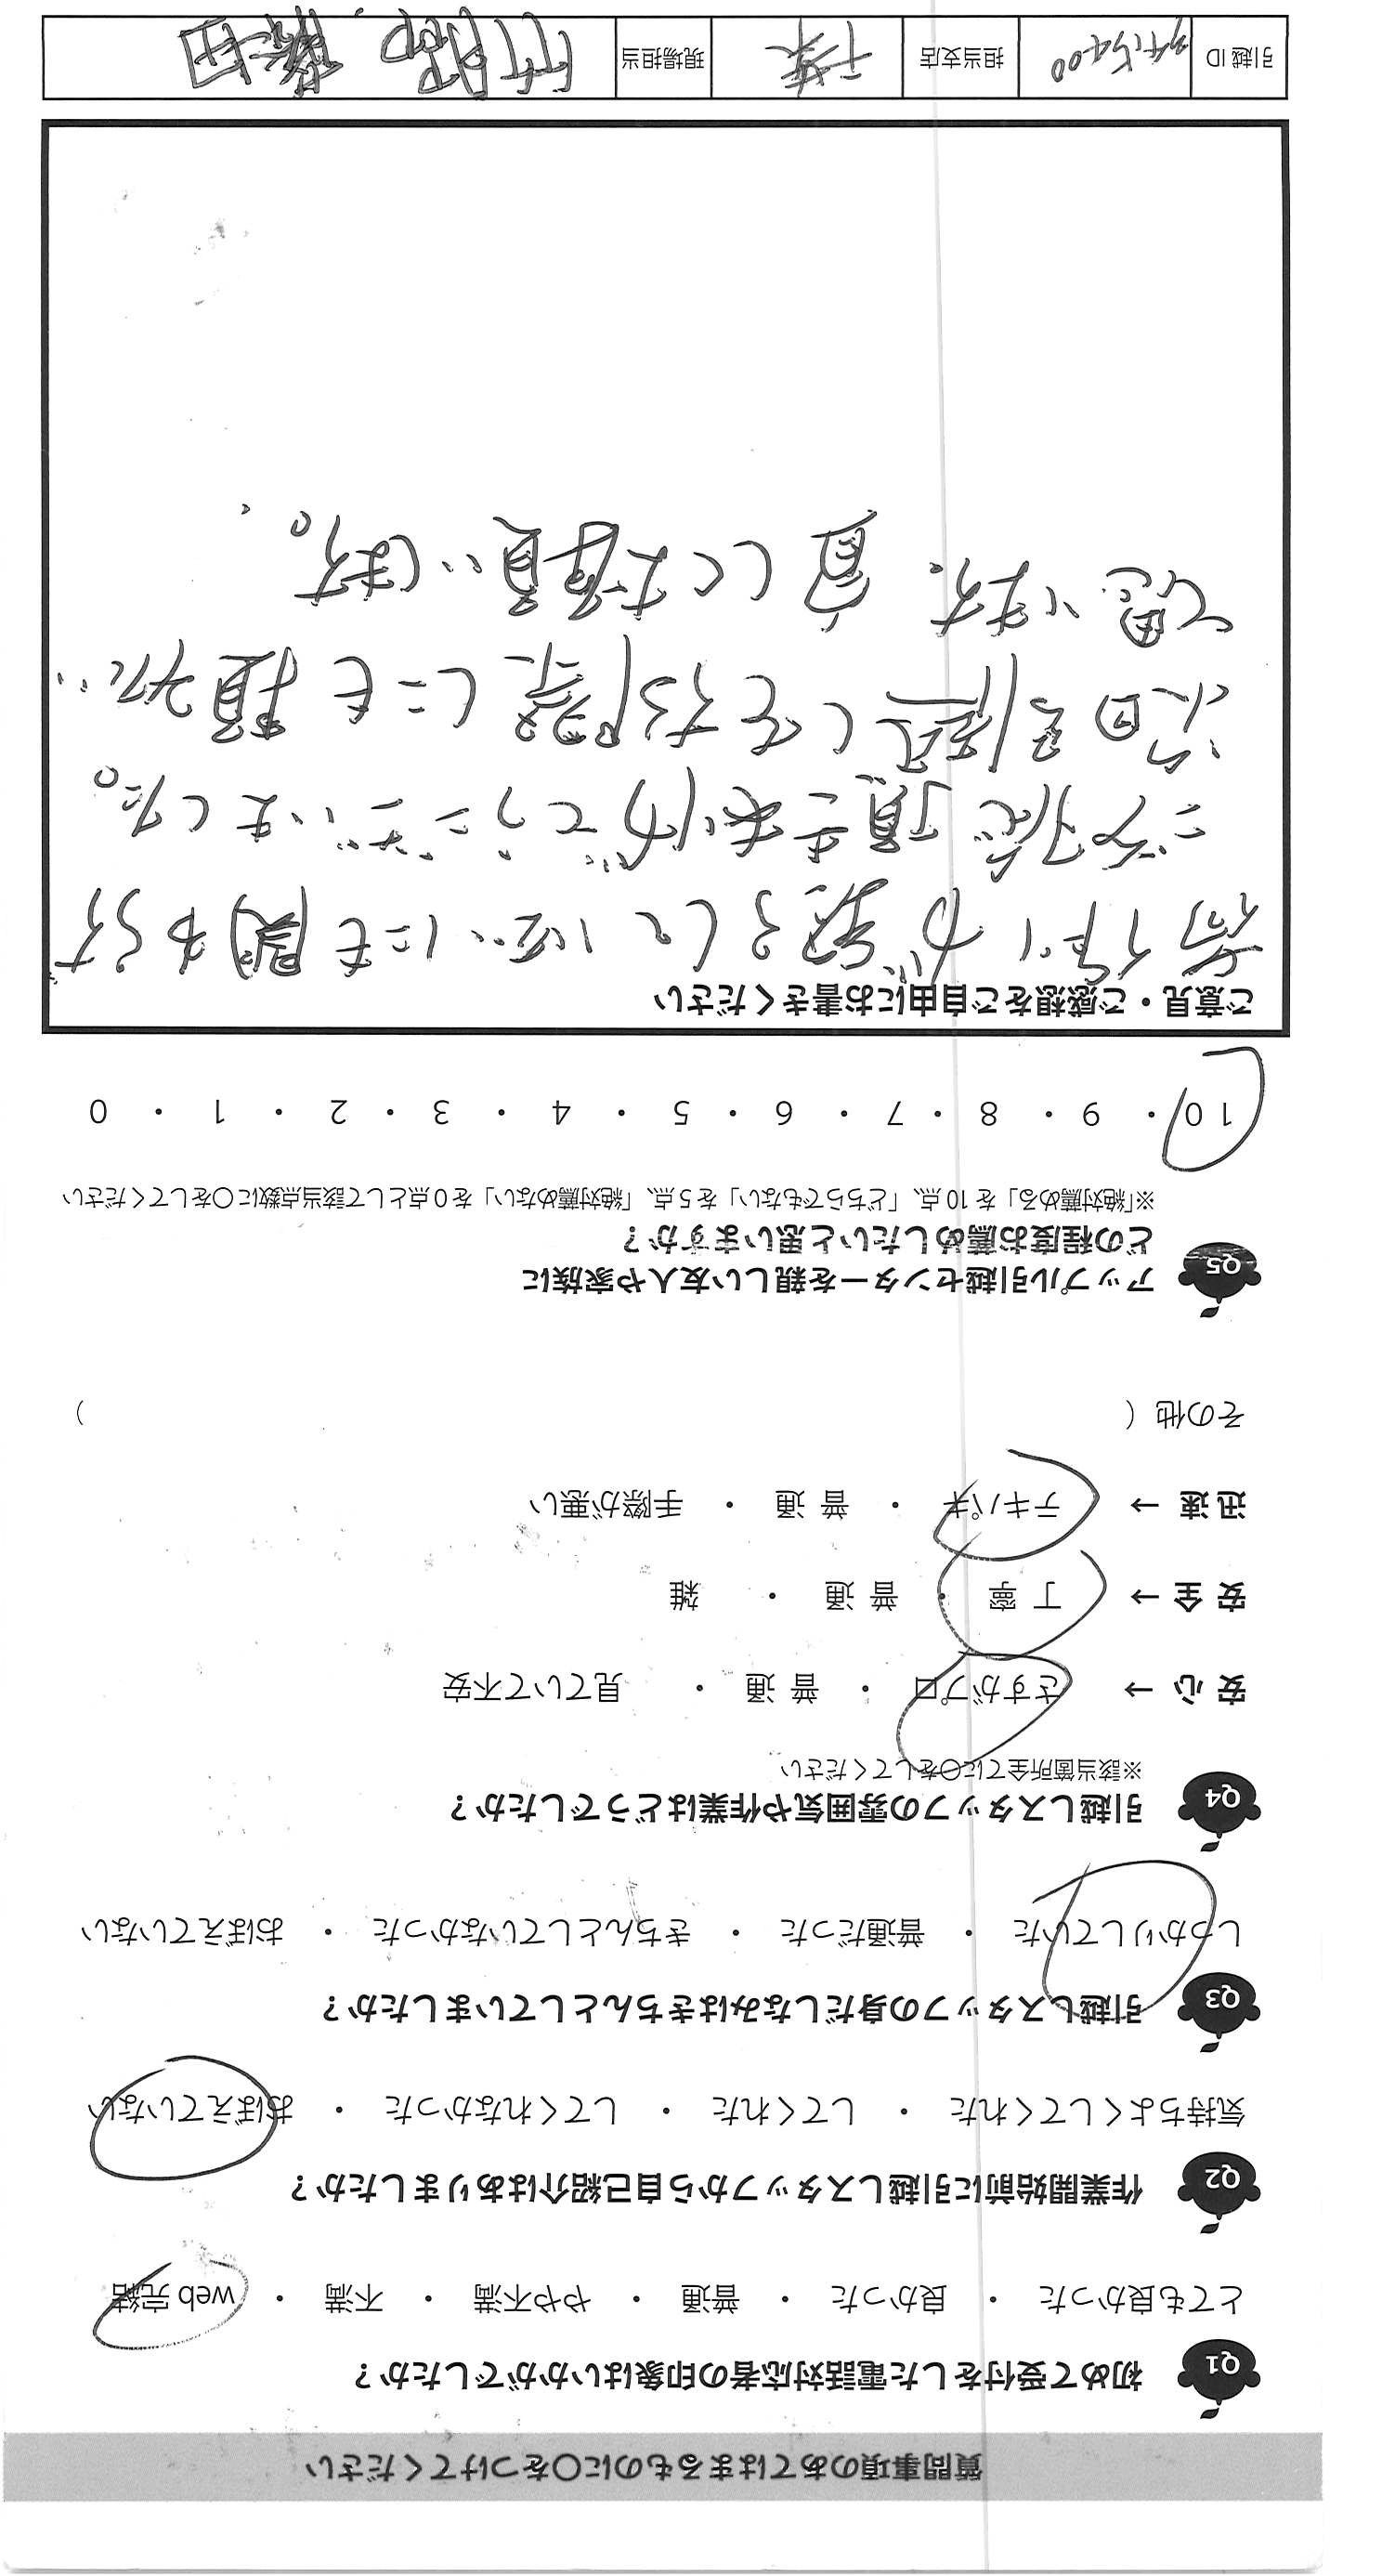 質問事項のあてはまるものに〇をつけてください
Q1 初めて受付をした電話対応者の印象はいかがでしたか？
とても良かった ・ 良かった ・ 普通 ・ やや不満 ・ 不満 ・ web 完結
Q2 作業開始前に引越しスタッフから自己紹介はありましたか？
気持ちよくしてくれた ・ してくれた ・ してくれなかった ・ おぼえていない
Q3 引越しスタッフの身だしなみはきちんとしていましたか？
しっかりしていた ・ 普通だった ・ きちんとしていなかった ・ おぼえていない
Q4 引越しスタッフの雰囲気や作業はどうでしたか？
※該当箇所全てに〇をしてください
安 心 → さすがプロ ・ 普 通 ・ 見ていて不安
安 全 → 丁 寧 ・ 普 通 ・ 雑
迅 速 → テキパキ ・ 普 通 ・ 手際が悪い
その他（ ）
Q5 アップル引越センターを親しい友人や家族に
どの程度お薦めしたいと思いますか？
※「絶対薦める」を 10 点、「どちらでもない」を 5 点、「絶対薦めない」を 0 点として該当点数に〇をしてください
10 ・ 9 ・ 8 ・ 7 ・ 6 ・ 5 ・ 4 ・ 3 ・ 2 ・ 1 ・ 0
ご意見・ご感想をご自由にお書きください
荷作りが整っていないにも関わらず
ご対応頂きありがとうございました。
次回引越しをする際にも頼みたい
と思います。宜しくお願いします。
引越 ID 担当支店 千葉 現場担当